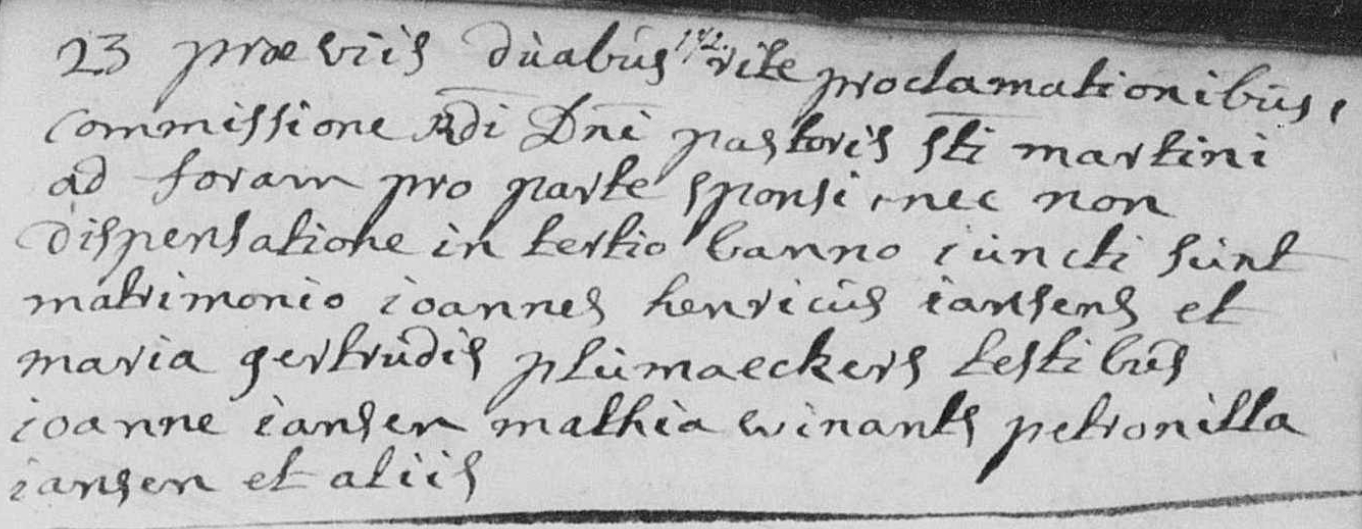 23 præviis duabus rite proclamationibus,
commissione Rdi Dni pastoris sti martini
ad foram pro parte sponsi, nec non
dispensatione in tertio banno iuncti sunt
matrimonio ioannes henricus iansens et
maria gertrudis plumaeckers testibus
ioanne iansen mathia winants petronilla
iansen et aliis